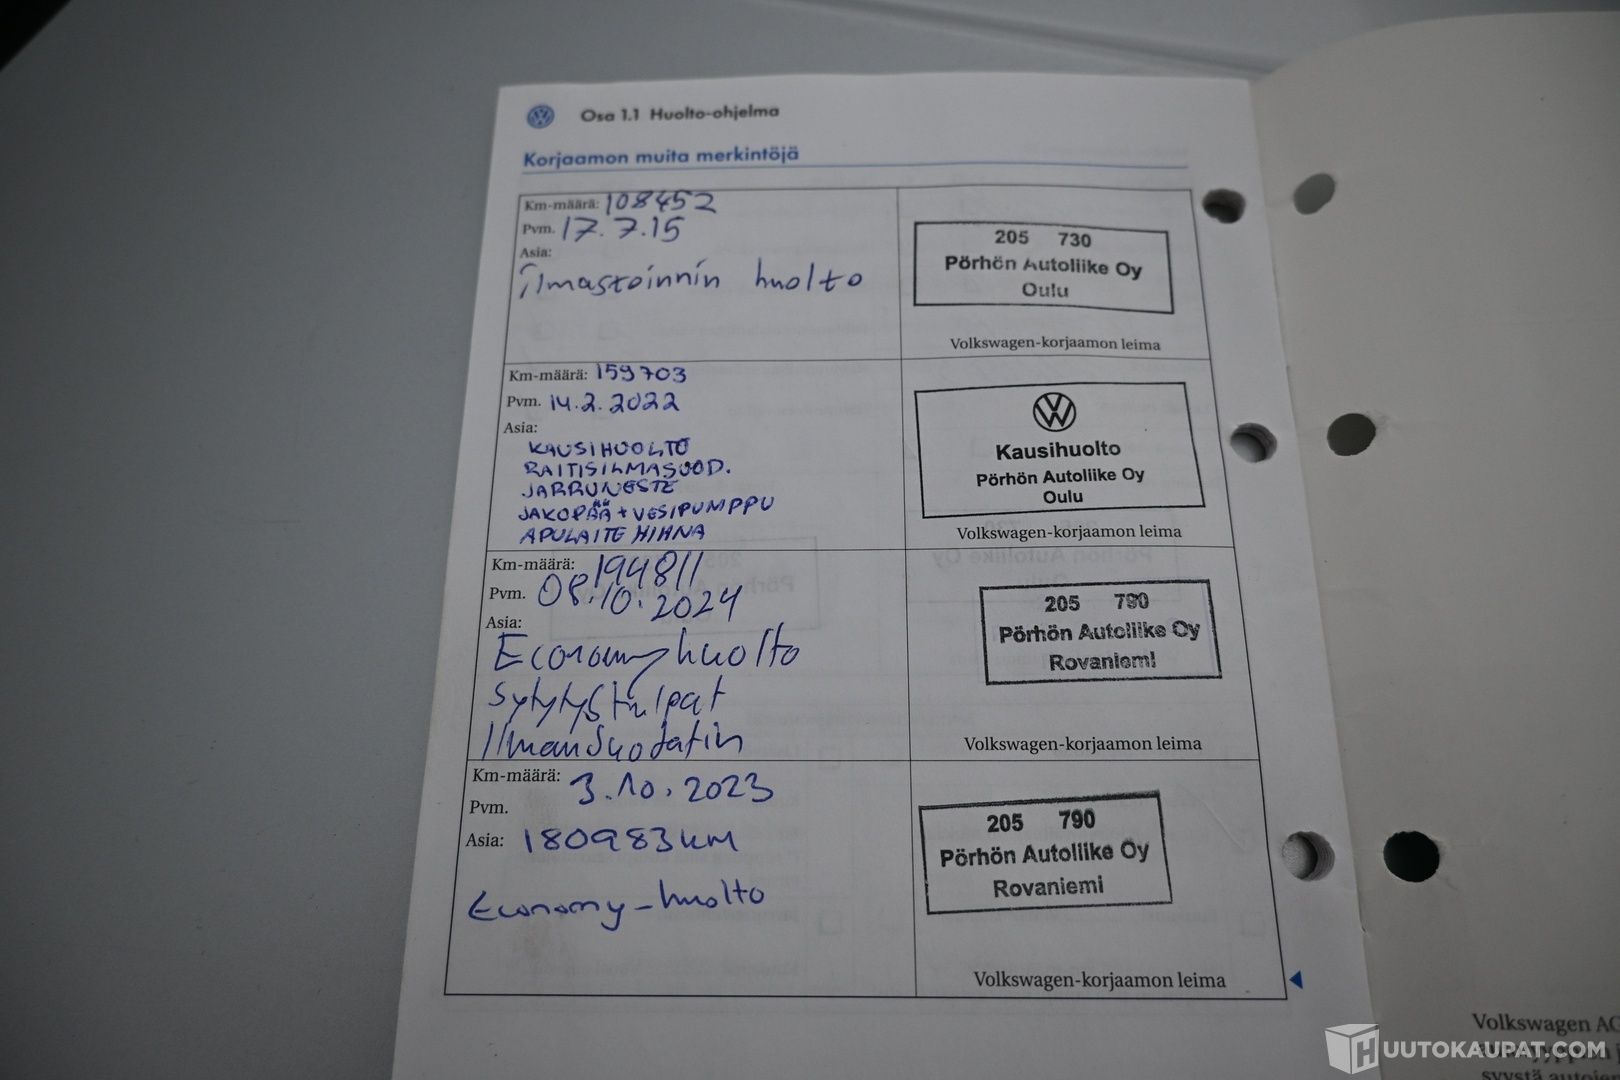 Osa 1.1 Huolto-ohjelma
Korjaamon muita merkintöjä
Km-määrä: 108452
Pvm. 17.7.15
Asia:
ilmastoinnin huolto
205 730
Pörhön Autoliike Oy
Oulu
Volkswagen-korjaamon leima
Km-määrä: 159703
Pvm. 14.2.2022
Asia:
KAUSIHUOLTO
RAITISILMASUOD.
JARRUNESTE
JAKOPÄÄ + VESIPUMPPU
APULAITE HIHNA
Kausihuolto
Pörhön Autoliike Oy
Oulu
Volkswagen-korjaamon leima
Km-määrä: 194811
Pvm. 08.10.2024
Asia:
Economyhuolto
Sytytystulpat
Ilmansuodatin
205 790
Pörhön Autoliike Oy
Rovaniemi
Volkswagen-korjaamon leima
Km-määrä: 3.10.2023
Pvm.
Asia: 180983km
Economy-huolto
205 790
Pörhön Autoliike Oy
Rovaniemi
Volkswagen-korjaamon leima
Volkswagen AG
HUUTOKAUPAT.COM